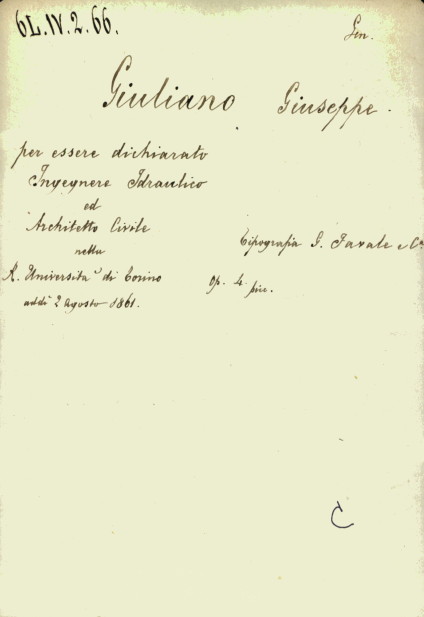 6L.IV.2.66.
Gen.
Giuliano Giuseppe.
per essere dichiarato
Ingegnere Idraulico
ed
Architetto Civile
nella
R. Università di Torino
addì 2 Agosto 1861.
Tipografia G. Favale e Ca
op. 4. picc.
C